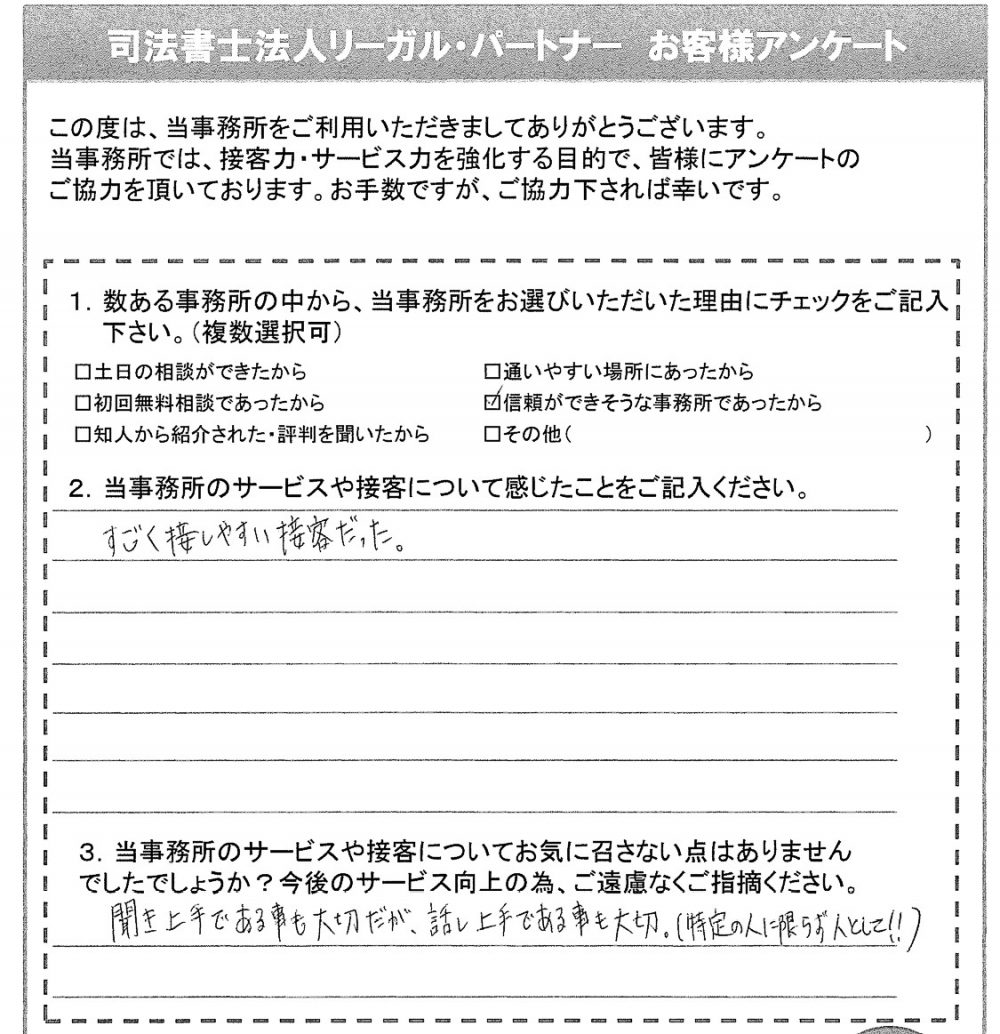 司法書士法人リーガル・パートナー お客様アンケート
この度は、当事務所をご利用いただきましてありがとうございます。
当事務所では、接客力・サービス力を強化する目的で、皆様にアンケートの
ご協力を頂いております。お手数ですが、ご協力下されば幸いです。
1. 数ある事務所の中から、当事務所をお選びいただいた理由にチェックをご記入
下さい。（複数選択可）
□土日の相談ができたから □通いやすい場所にあったから
□初回無料相談であったから ☑信頼ができそうな事務所であったから
□知人から紹介された・評判を聞いたから □その他（ ）
2. 当事務所のサービスや接客について感じたことをご記入ください。
すごく接しやすい接客だった。
3. 当事務所のサービスや接客についてお気に召さない点はありません
でしたでしょうか？今後のサービス向上の為、ご遠慮なくご指摘ください。
聞き上手である事も大切だが、話し上手である事も大切。（特定の人に限らず人として!!）